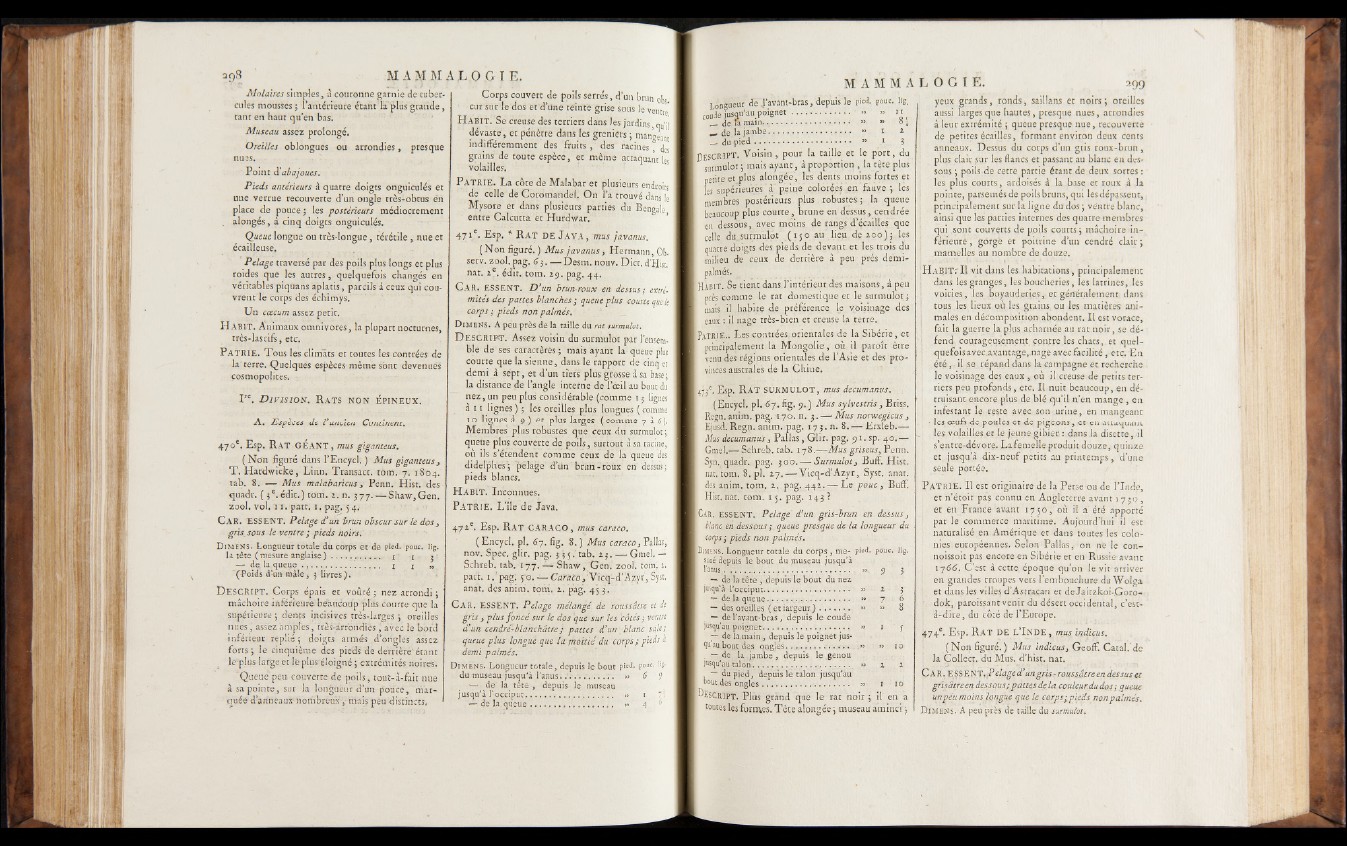 298 MAMMALOGIE.
Molaires simples, à couronne garnie de tuber-
cules mousses ; l'antérieure étant la plus grande,
tant en haut qu'en bas.
Museau assez prolongé.
Oreilles oblongues ou arrondies, presque
nues.
Point d'abajoues.
Pieds antérieurs à quatre doigts onguiculés et
une verrue recouverte d'un ongle très-obtus en
place de pouce ; les postérieurs médiocrement
alongés, à cinq doigts onguiculés.
Queue longue ou très-longue, térétile, nue et
écailleuse.
Pelage traversé par des poils plus longs et plus
roides que les autres, quelquefois changés en
véritables piquans aplatis, pareils à ceux qui cou-
vrent le corps des échimys.
Un cœcum assez petit.
HABIT. Animaux omnivores, la plupart nocturnes,
très-lascifs, etc.
PATRIE. Tous les climats et toutes les contrées de
la terre. Quelques espèces même sont devenues
cosmopolites.
Ire. DIVISION. RATS NON ÉPINEUX.
A. Espèces de l'ancien Continent.
470e. Esp. RAT GÉANT, mus giganteus.
(Non figuré dans l'Encycl.) Mus giganteus,
T. Hardwicke, Linn. Transact. tom. 7. 1804.
tab. 8. — Mus malabaricus, Penn. Hist. des
quadr. (3e. édit.) tom. 2. n. 377. — Shaw, Gen.
zool. vol. 11. part. 1, pag. 54.
CAR. ESSENT. Pelage d'un brun obscur sur le dos,
gris sous le ventre ; pieds noirs.
DIMENS. Longueur totale du corps et de pied. pouc. lig.
la tête (mesure anglaise) ........... 1 1 3
— de la queue ............... 1 1 »
(Poids d'un mâle, 3 livres).
DESCRIPT. Corps épais et voûté ; nez arrondi ;
mâchoire inférieure beaucoup plus courte que la
supérieure ; dents incisives très-larges ; oreilles
nues, assez amples, très-arrondies, avec le bord
inférieur replié ; doigts armés d'ongles assez
forts ; le cinquième des pieds de derrière étant
le plus large et le plus éloigné ; extrémités noires.
Queue peu couverte de poils, tout-à-fait nue
à sa pointe, sur la longueur d'un pouce, mar-
quée d'anneaux nombreux, mais peu distincts.
Corps couvert de poils serrés, d'un brun obs-
cur sur le dos et d'une teinte grise sous le ventre.
HABIT. Se creuse des terriers dans les jardins, qu'il
dévaste, et pénètre dans les greniers ; mangeant
indifféremment des fruits, des racines, des
grains de toute espèce, et même attaquant les
volailles.
PATRIE. La côte de Malabar et plusieurs endroits
de celle de Coromandel. On l'a trouvé dans le
Mysore et dans plusieurs parties du Bengale,
entre Calcutta et Hurdwar.
471e. Esp. * RAT DE JAVA, mus javanus.
(Non figuré.) Mus javanus, Hermann, Ob-
serv. zool. pag. 63. — Desm. nouv. Dict. d'Hist.
nat. 2e. édit. tom. 29. pag. 44.
CAR. ESSENT. D'un brun-roux en dessus ; extré-
mités des pattes blanches ; queue plus courte que le
corps ; pieds non palmés.
DIMENS. A peu près de la taille du rat surmulot.
DESCRIPT. Assez voisin du surmulot par l'ensem-
ble de ses caractères ; mais ayant la queue plus
courte que la sienne, dans le rapport de cinq et
demi à sept, et d'un tiers plus grosse à sa base ;
la distance de l'angle interne de l'œil au bout du
nez, un peu plus considérable (comme 13 lignes
à 11 lignes) ; les oreilles plus longues (comme
10 lignes à 9) et plus larges (comme 7 à 6).
Membres plus robustes que ceux du surmulot ;
queue plus couverte de poils, surtout à sa racine,
où ils s'étendent comme ceux de la queue des
didelphes ; pelage d'un brun-roux en dessus ;
pieds blancs.
HABIT. Inconnues.
PATRIE. L'île de Java.
472e. Esp. RAT CARACO, mus caraco.
(Encycl. pl. 67. fig. 8.) Mus caraco, Pallas,
nov. Spec. glir. pag. 335. tab. 23. — Gmel. —
Schreb. tab. 177. — Shaw, Gen. zool. tom. 2.
part. 1, pag. 50. — Caraco, Vicq-d'Azyr, Syst.
anat. des anim. tom. 2. pag. 453.
CAR. ESSENT. Pelage mélangé de roussâtre et de
gris, plus foncé sur le dos que sur les côtés ; ventre
d'un cendré-blanchâtre ; pattes d'un blanc sale ;
queue plus longue que la moitié du corps ; pieds à
demi palmés.
DIMENS. Longueur totale, depuis le bout pied. pouc. lig.
du museau jusqu'à l'anus............ » 6 9
— de la tête, depuis le museau
jusqu'à l'occiput.................. » 1
— de la queue .................. » 4
MAMMALOGIE. 299
Longueur de l'avant-bras, depuis le pied. pouc. lig.
coude jusqu'au poignet ............. » » 11
— de la main................... » » 8½
— de la jambe.................. » 1 2
— du pied .................... » 1 3
DESCRIPT. Voisin, pour la taille et le port, du
surmulot ; mais ayant, à proportion, la tête plus
petite et plus alongée, les dents moins fortes et
les supérieures à peine colorées en fauve ; les
membres postérieurs plus robustes ; la queue
beaucoup plus courte, brune en dessus, cendrée
en dessous, avec moins de rangs d'écailles que
celle du surmulot (150 au lieu de 200) ; les
quatre doigts des pieds de devant et les trois du
milieu de ceux de derrière à peu près demi-
palmés.
HABIT. Se tient dans l'intérieur des maisons, à peu
près comme le rat domestique et le surmulot ;
mais il habite de préférence le voisinage des
eaux : il nage très-bien et creuse la terre.
PATRIE. Les contrées orientales de la Sibérie, et
principalement la Mongolie, où il paroît être
venu des régions orientales de l'Asie et des pro-
vinces australes de la Chine.
473e. Esp. RAT SURMULOT, mus decumanus.
(Encycl. pl. 67. fig. 9.) Mus sylvestris, Briss.
Regn. anim. pag. 170. n. 3. — Mus norwegicus,
Ejusd. Regn. anim. pag. 173. n. 8. — Erxleb.—
Mus decumanus, Pallas, Glir. pag. 91. sp. 40.—
Gmel.— Schreb. tab. 178.— Mus griseus, Penn.
Syn. quadr. pag. 300. — Surmulot, Buff. Hist.
nat. tom. 8. pl. 27. — Vicq-d'Azyr, Syst. anat.
des anim. tom. 2. pag. 442. — Le pouc, Buff.
Hist. nat. tom. 15. pag. 143 ?
CAR. ESSENT. Pelage d'un gris-brun en dessus,
blanc en dessous ; queue presque de la longueur du
corps ; pieds non palmés.
DIMENS. Longueur totale du corps, me- pied. pouc. lig.
suré depuis le bout du museau jusqu'à
l'anus ......................... » 9 3
— de la tête, depuis le bout du nez
jusqu'à l'occiput................. » 2 3
— de la queue.................. » 7 6
— des oreilles (et largeur) ....... » » 8
— de l'avant-bras, depuis le coude
jusqu'au poignet................. » 1 5
— de la main, depuis le poignet jus-
qu'au bout des ongles.............. » » 10
— de la jambe, depuis le genou
jusqu'au talon................... » 2 2
— du pied, depuis le talon jusqu'au
bout des ongles.................. » 1 10
DESCRIPT. Plus grand que le rat noir ; il en a
toutes les formes. Tête alongée ; museau aminci ;
yeux grands, ronds, saillans et noirs ; oreilles
aussi larges que hautes, presque nues, arrondies
à leur extrémité ; queue presque nue, recouverte
de petites écailles, formant environ deux cents
anneaux. Dessus du corps d'un gris roux-brun,
plus clair sur les flancs et passant au blanc en des-
sous ; poils de cette partie étant de deux sortes :
les plus courts, ardoisés à la base et roux à la
pointe, parsemés de poils bruns, qui les dépassent,
principalement sur la ligne du dos ; ventre blanc,
ainsi que les parties internes des quatre membres
qui sont couverts de poils courts ; mâchoire in-
férieure, gorge et poitrine d'un cendré clair ;
mamelles au nombre de douze.
HABIT. Il vit dans les habitations, principalement
dans les granges, les boucheries, les latrines, les
voiries, les boyauderies, et généralement dans
tous les lieux où les grains ou les matières ani-
males en décomposition abondent. Il est vorace,
fait la guerre la plus acharnée au rat noir, se dé-
fend courageusement contre les chats, et quel-
quefois avec avantage, nage avec facilité, etc. En
été, il se répand dans la campagne et recherche
le voisinage des eaux, où il creuse de petits ter-
riers peu profonds, etc. Il nuit beaucoup, en dé-
truisant encore plus de blé qu'il n'en mange, en
infestant le reste avec son urine, en mangeant
les œufs de poules et de pigeons, et en attaquant
les volailles et le jeune gibier : dans la disette, il
s'entre-dévore. La femelle produit douze, quinze
et jusqu'à dix-neuf petits au printemps, d'une
seule portée.
PATRIE. Il est originaire de la Perse ou de l'Inde,
et n'étoit pas connu en Angleterre avant 1730,
et en France avant 1750, où il a été apporté
par le commerce maritime. Aujourd'hui il est
naturalisé en Amérique et dans toutes les colo-
nies européennes. Selon Pallas, on ne le con-
noissoit pas encore en Sibérie et en Russie avant
1766. C'est à cette époque qu'on le vit arriver
en grandes troupes vers l'embouchure du Wolga
et dans les villes d'Astracan et de Jaitzkoi-Goro-
dok, paroissant venir du désert occidental, c'est-
à-dire, du côté de l'Europe.
474e. Esp. RAT DE L'INDE, mus indicus.
(Non figuré.) Mus indicus, Geoff. Catal. de
la Collect. du Mus. d'hist. nat.
CAR. ESSENT. Pelage d'un gris-roussâtre en dessus et
grisâtre en dessous ; pattes de la couleur du dos ; queue
un peu moins longue que le corps ; pieds non palmés.
DIMENS. A peu près de taille du surmulot.